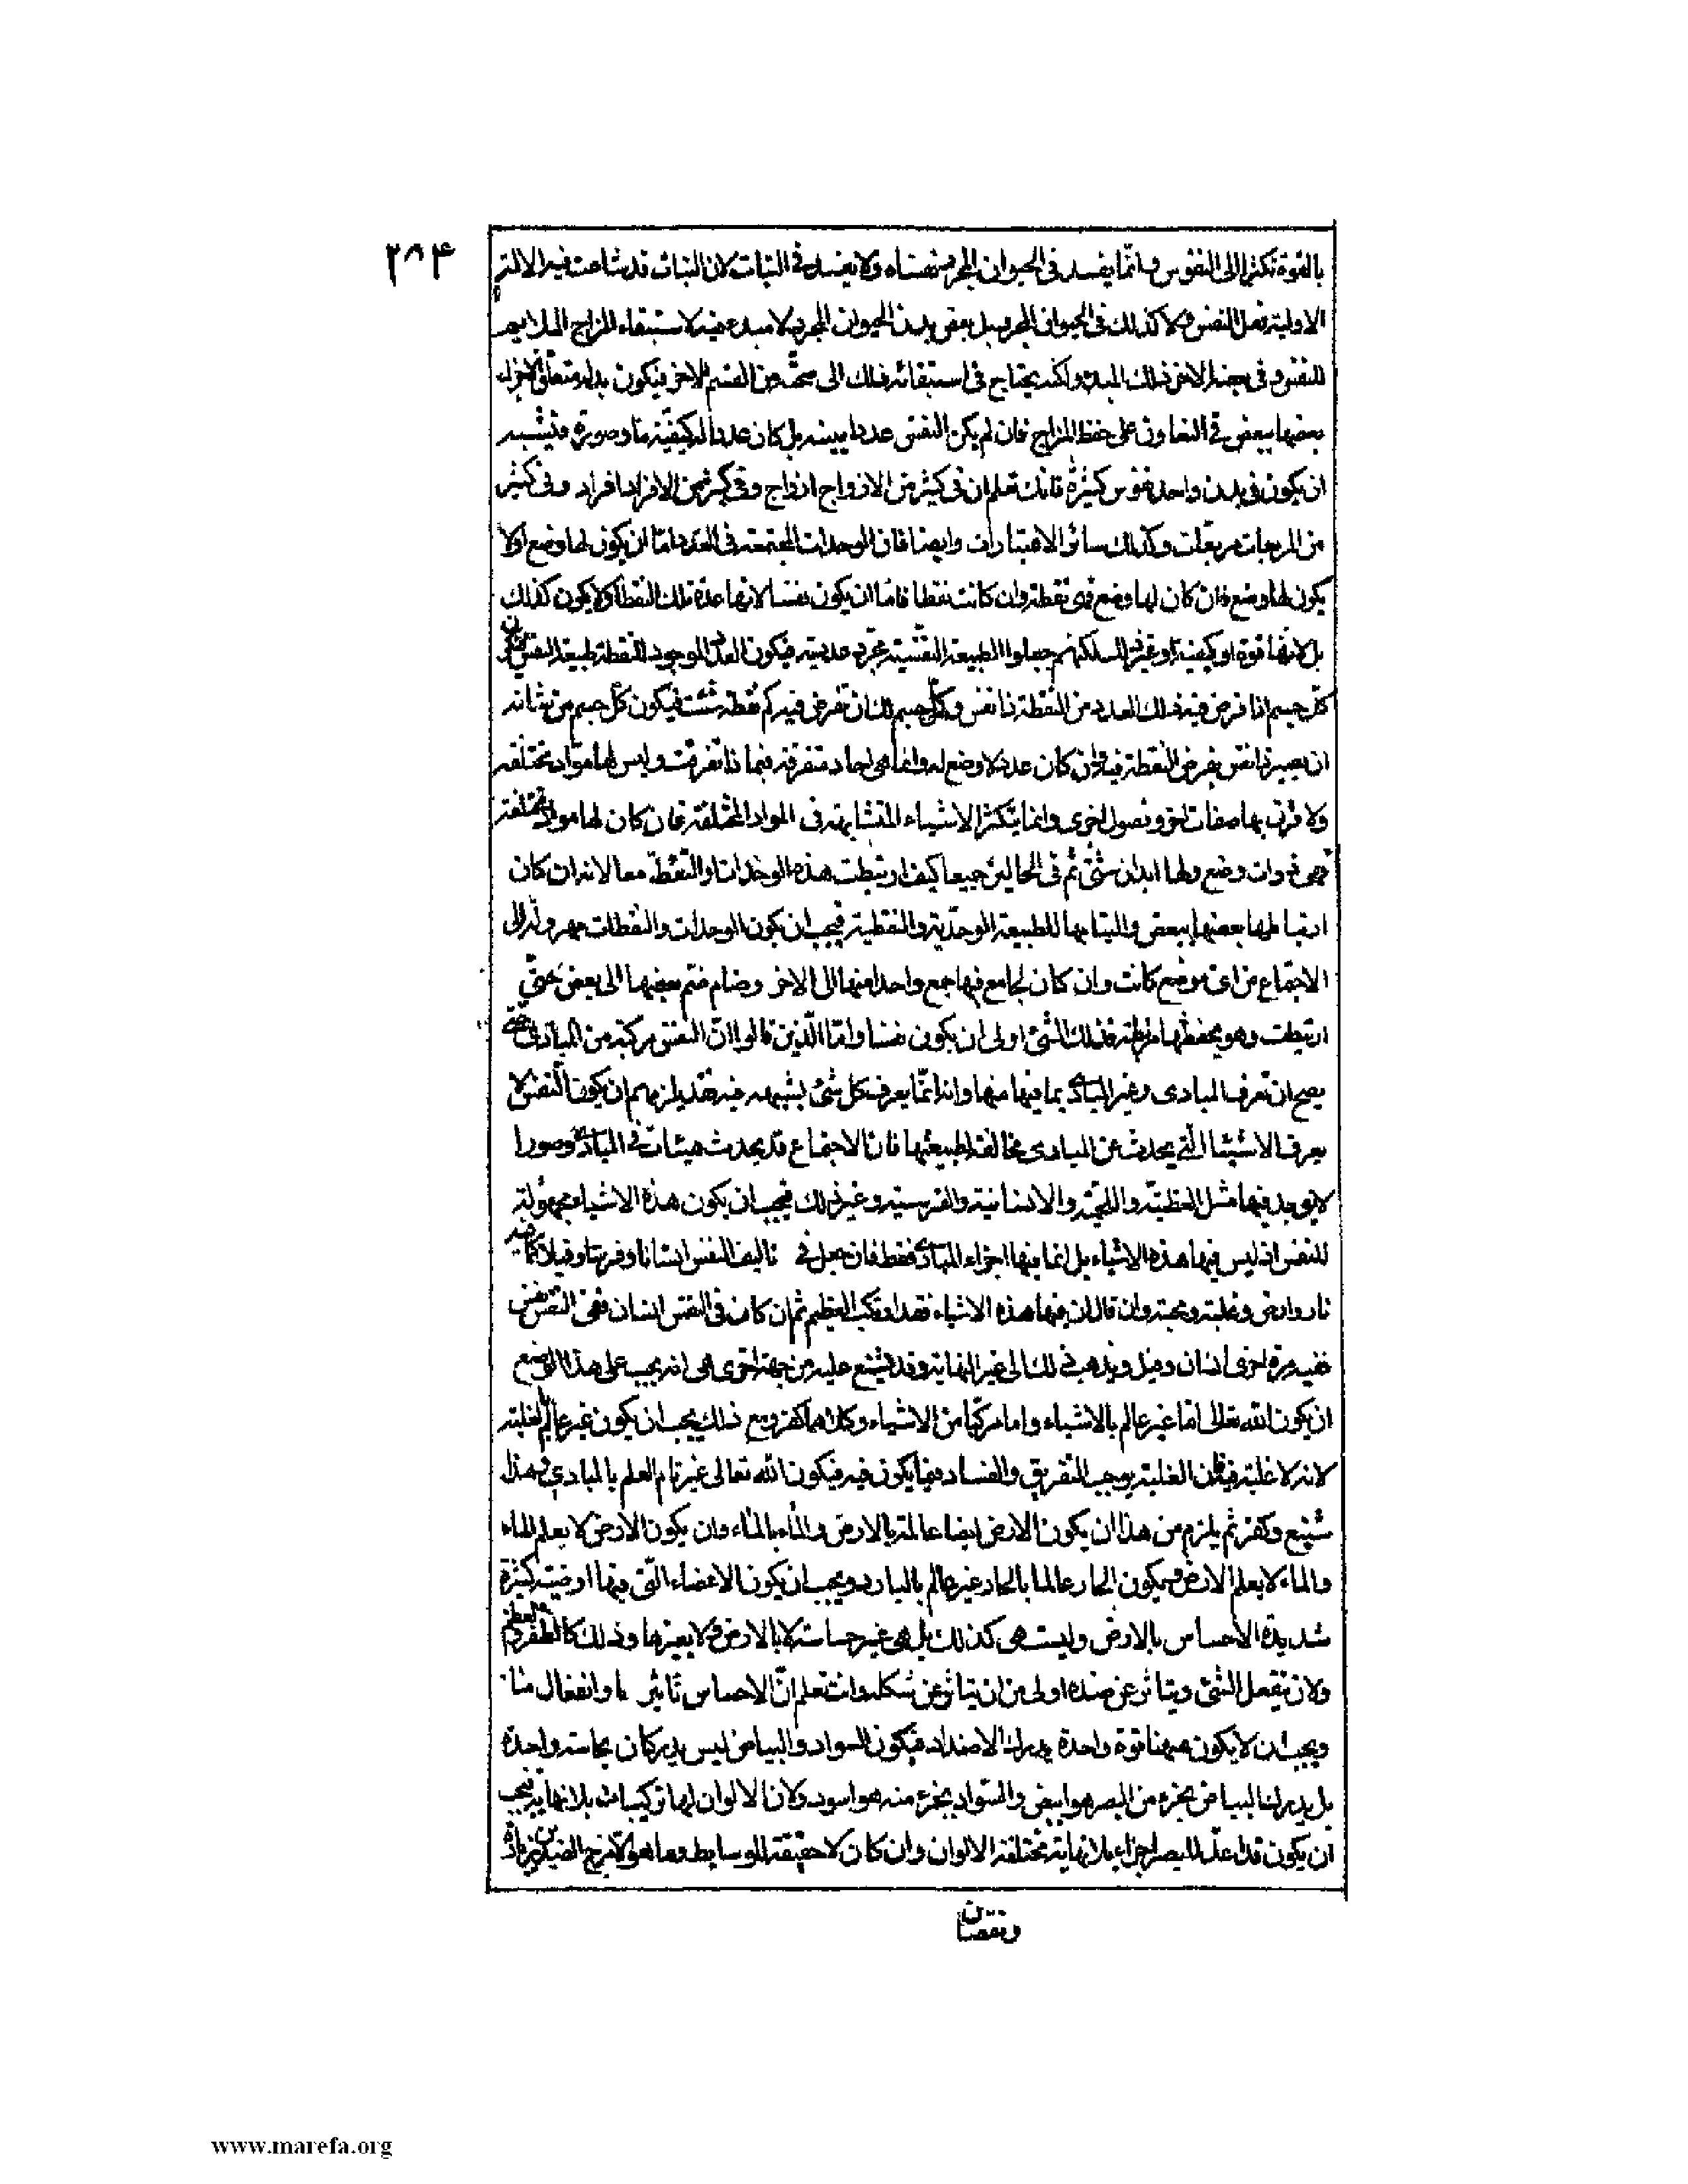 ٢٨٤
بالقوة تكثرا الى النفوس وانما يفسد في الحيوان المحرز نصفاه ولا يفسد في النبات لان النبات قد شاعت فيه الالة
الاولية لفعل النفس ولا كذلك في الحيوان المحرز بل بعض بدن الحيوان المحرز لا مبدء فيه لاستبقاء المزاج الملايم
للنفس وفي بعضه الاخر ذلك المبدء ولكنه يحتاج في استبقائه ذلك الى صحبة من القسم الاخر فيكون بدنه متعلق الاجزاء
بعضها ببعض في التعاون على حفظ المزاج فان لم يكن النفس عددا بعينه بل كان عددا له كيفية ما وصورة فيشبه
ان يكون في بدن واحد نفوس كثيرة فانك تعلم ان في كثير من الازواج ازواج وفي كثير من الافراد افراد وفي كثير
من المربعات مربعات وكذلك سائر الاعتبارات وايضا فان الوحدات المجتمعة في العدد اما ان يكون لها وضع اولا
يكون لها وضع فان كان لها وضع فهي نقطة وان كانت نقطا فاما ان يكون نفسا لانها عدة تلك النقط او لا يكون كذلك
بل لانها قوة او كيفية او غير ذلك لكنهم جعلوا الطبيعة النفسية مجرد عددية فيكون العدد الموجود للنقطة طبيعة النفس فيكون
كل جسم اذا فرض فيه ذلك العدد من النقطة ذا نفس وكل جسم لك ان تفرض فيه كم نقطة شئت فيكون كل جسم من شانه
ان يصير ذا نفس بفرض النقطة فيه وان كان عددا لا وضع له وانما هي احاد متفرقة فبماذا تفرقت وليس لها مواد مختلفة
ولا قرن بها صفات اخر وفصول اخرى وانما يتكثر الاشياء المتشابهة في المواد المختلفة فان كان لها مواد مختلفة
فهي ذوات وضع ولها ابدان شتى ثم في الحالين جميعا كيف ارتبطت هذه الوحدات او النقط معا لانه ان كان
ارتباطها بعضها ببعض والتيامها للطبيعة الوحدية والنقطية فيجب ان يكون الوحدات والنقطات مهرولة الى
الاجتماع من اي موضع كانت وان كان لجامع فيها جمع واحدا منها الى الاخر وضام ضم بعضها الى بعض حتى
ارتبطت وهو يحفظها مرتبطة فذلك الشئ اولى ان يكون نفسا واما الذين قالوا ان النفس مركبة من المبادي حتى
يصح ان تعرف المبادي وغير المبادي بما فيها منها وانه انما يعرف كل شئ بشبيهه فيه فقد يلزمهم ان يكون النفس لا
يعرف الاشياء التي يحدث عن المبادي مخالفة لطبيعتها فان الاجتماع قد يحدث هيئات في المبادي وصورا
لا يوجد فيها مثل العظمية واللحمية والانسانية والفرسية وغير ذلك فيجب ان يكون هذه الاشياء مجهولة
للنفس اذ ليس فيها هذه الاشياء بل انما فيها اجزاء المبادي فقط فان جعل في تاليف النفس انسانا وفرسا وفيلا كما فيه
نار وارض وغلبة ومحبة وان قال ان فيها هذه الاشياء فقد ارتكب العظيم ثم ان كان في النفس انسان ففي النفس نفس
ففيه مرة اخرى انسان وفيل ويذهب ذلك الى غير النهاية وقد يشنع عليه من جهة اخرى هي انه يجب على هذا الوضع
ان يكون الله تعالى اما غير عالم بالاشياء واما مركبا من الاشياء وكلاهما كفر ومع ذلك يجب ان يكون غير عالم بالغلبة
لانه لا غلبة فيه فان الغلبة يوجب التفريق والفساد فيما يكون فيه فيكون الله تعالى غير تام العلم بالمبادي وهذا
شنيع وكفر ثم يلزم من هذا ان يكون الارض ايضا عالمة بالارض والماء بالماء وان يكون الارض لا يعلم الماء
والماء لا يعلم الارض ويكون الحار عالما بالحار غير عالم بالبارد ويجب ان يكون الاعضاء التي فيها ارضية كثيرة
شديدة الاحساس بالارض وليست هي كذلك بل هي غير حساسة لا بالارض ولا بغيرها وذلك كالظفر والعظم
ولان ينفعل الشئ ويتاثر عن ضده اولى من ان يتاثر عن شكله وانت تعلم ان الاحساس تاثر ما وانفعال ما
ويجب ان لا يكون هيهنا قوة واحدة يدرك الاضداد فيكون السواد والبياض ليس يدركان بحاسة واحدة
بل يدرك البياض بجزء من البصر هو ابيض والسواد بجزء منه هو اسود ولان الالوان لها تركيبات بلا نهاية فيجب
ان يكون قد اعد للبصر اجزاء بلا نهاية مختلفة الالوان وان كان لا حقيقة للوسايط وما هو الا مزج الضدين بزيادة
ونقصان
www.marefa.org